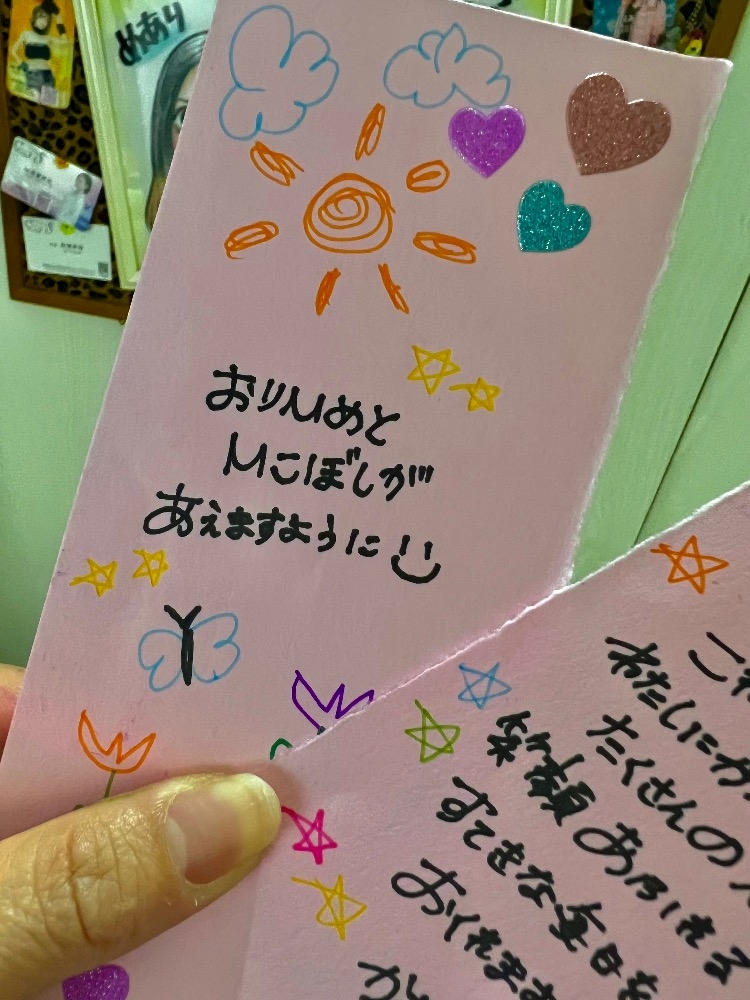 めあり
おりひめと
ひこぼしが
あえますように
わたしにか
たくさんの
笑顔あふれる
すてきな毎日を
おくれます